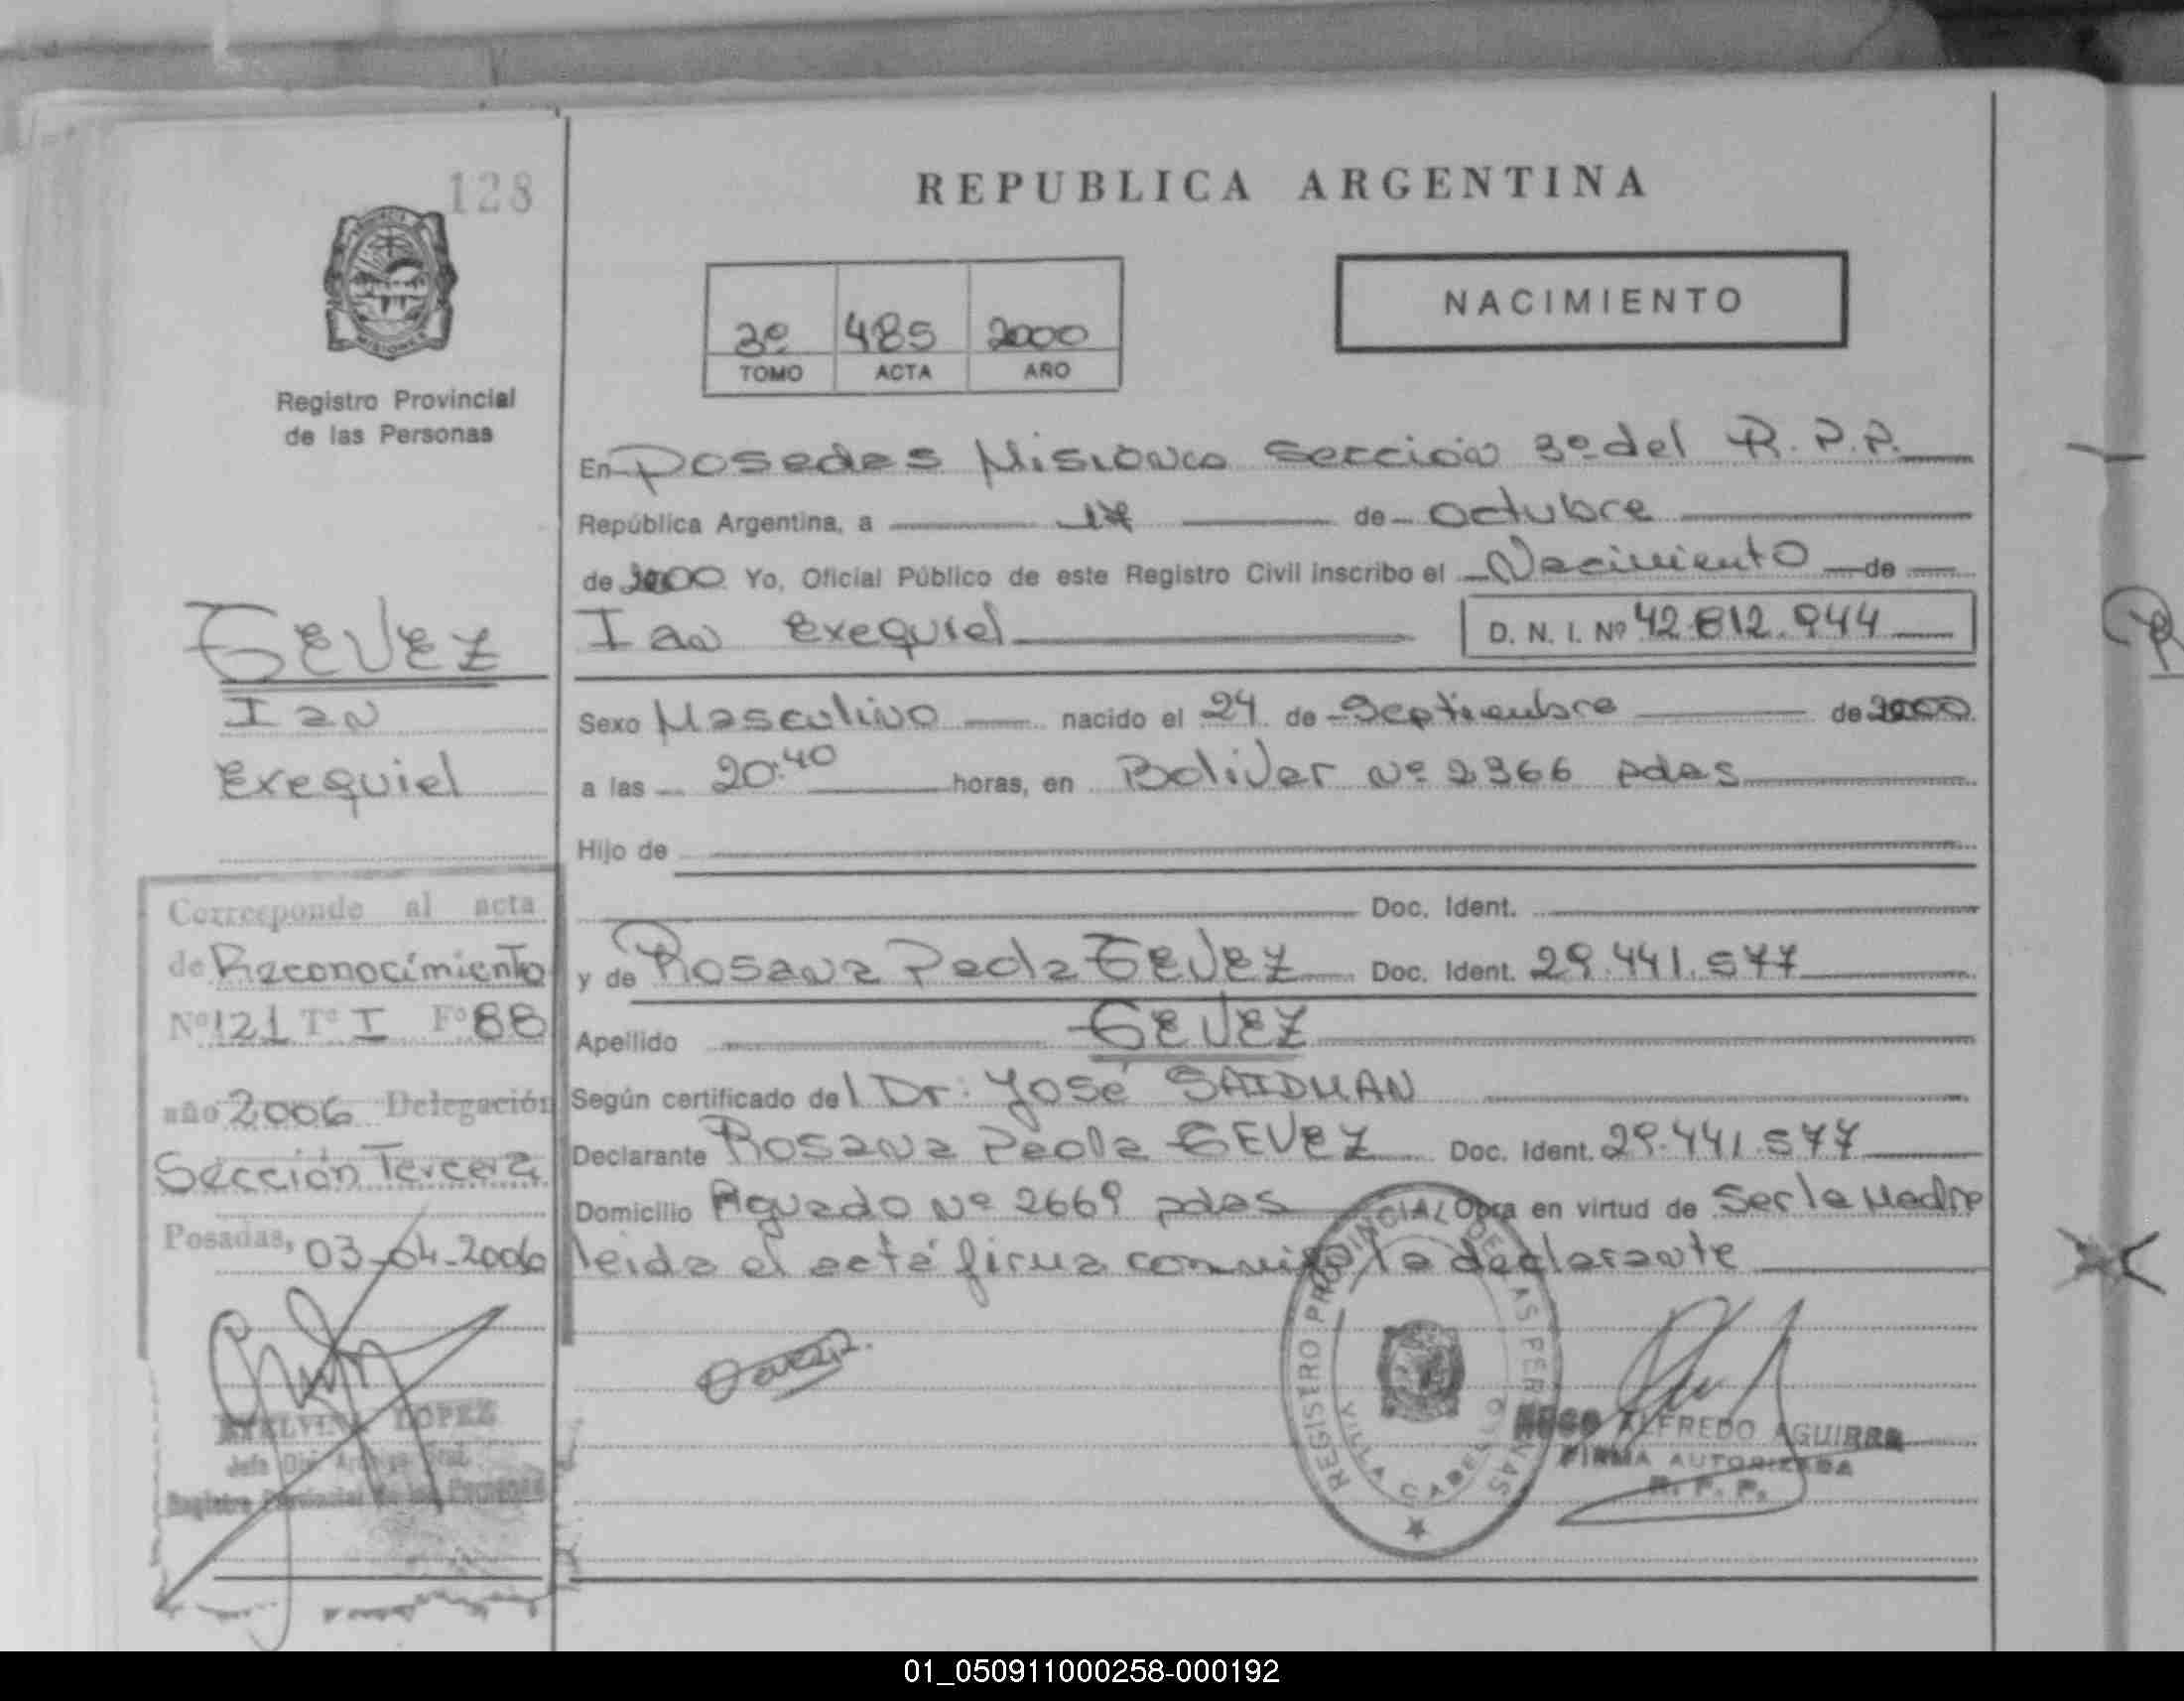 128
Registro Provincial
de las Personas
GEVEZ
Ian
Exequiel
Corresponde al acta
de Reconocimiento
Nº 121 Tº I Fº 88
año 2006 Delegación
Sección Tercera
Posadas, 03-04-2006
LOPEZ
Registro Provincial de las Personas
REPUBLICA ARGENTINA
3º 485 2000
TOMO ACTA AÑO
NACIMIENTO
En Posadas Misiones Sección 3º del R.P.P.
República Argentina, a 17 de octubre
de 2000 Yo, Oficial Público de este Registro Civil inscribo el Nacimiento de
Ian Exequiel D. N. I. Nº 42.812.944
Sexo Masculino nacido el 24 de Septiembre de 2000
a las 20:40 horas, en Bolivar Nº 2366 pdas
Hijo de
Doc. Ident.
y de Rosana Paola GEVEZ Doc. Ident. 29.441.577
Apellido GEVEZ
Según certificado del Dr: José SAIDMAN
Declarante Rosana Paola GEVEZ Doc. Ident. 29.441.577
Domicilio Aguado Nº 2669 pdas Obra en virtud de Ser la Madre
leida el acta firma conmigo la declarante
REGISTRO PROVINCIAL DE LAS PERSONAS
VILLA CABELLO
ALFREDO AGUIRRE
FIRMA AUTORIZADA
R. P. P.
01_050911000258-000192